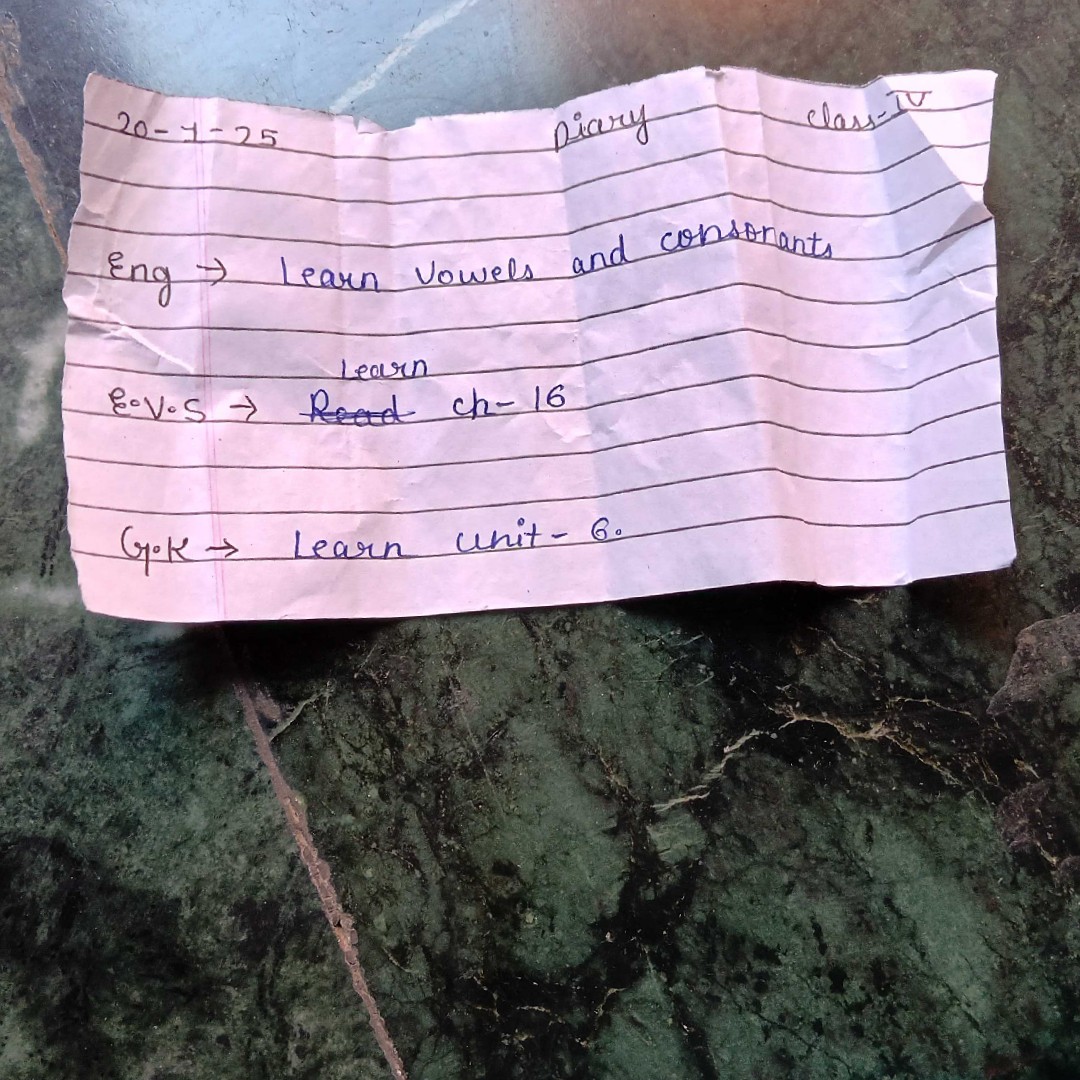 20-1-25 Diary class-IV
Eng → Learn Vowels and consonants
Learn
E.V.S → Read ch-16
G.K → Learn unit-6.